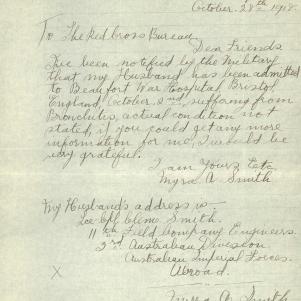 October. 28th 1918.
To The Red Cross Bureau.
Dear Friends
I've been notified by the Military
that my Husband has been admitted
to Beaufort War Hospital Bristol,
England, October 2nd, suffering from
Bronchitis, actual condition not
stated, if you could get any more
information for me, I would be
very grateful.
I am Yours Etc
Myra A Smith
My Husband's address is -
Smith.
11th Field Company Engineers.
3rd Australian Division
Australian Imperial Forces.
Abroad.
X
Myra A Smith